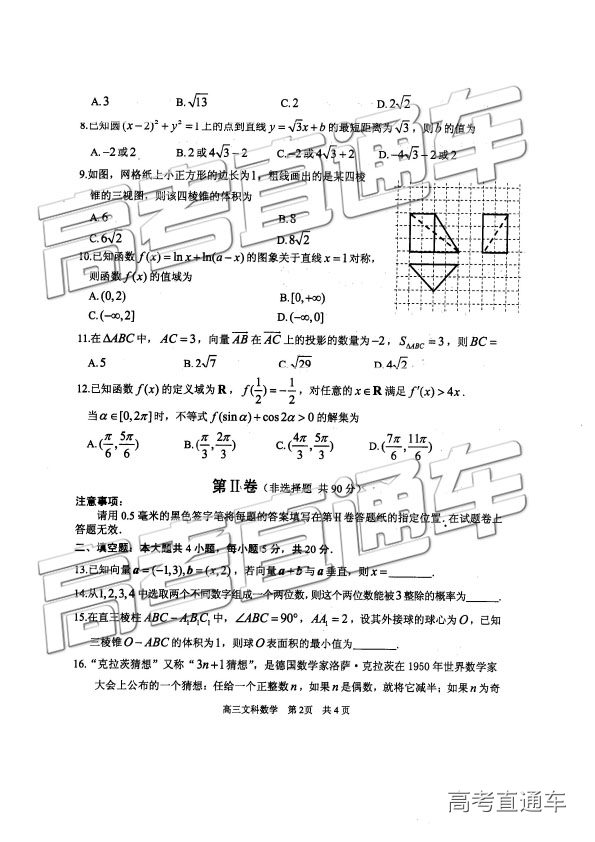 A. 3 B. √13 C. 2 D. 2√2
8.已知圆(x−2)²+y²=1上的点到直线y=√3x+b的最短距离为√3，则b的值为
A. −2或2 B. 2或4√3−2 C. −2或4√3+2 D. −4√3−2或2
9.如图，网格纸上小正方形的边长为1，粗线画出的是某四棱
锥的三视图，则该四棱锥的体积为
A. 6 B. 8
C. 6√2 D. 8√2
10.已知函数f(x)=ln x+ln(a−x)的图象关于直线x=1对称，
则函数f(x)的值域为
A. (0,2) B. [0,+∞)
C. (−∞,2] D. (−∞,0]
11.在ΔABC中，AC=3，向量AB在AC上的投影的数量为−2，S△ABC=3，则BC=
A. 5 B. 2√7 C. √29 D. 4√2
12.已知函数f(x)的定义域为R，f(1/2)=−1/2，对任意的x∈R满足f′(x)>4x.
当α∈[0,2π]时，不等式f(sinα)+cos2α>0的解集为
A. (π/6,5π/6) B. (π/3,2π/3) C. (4π/3,5π/3) D. (7π/6,11π/6)
第Ⅱ卷（非选择题 共90分）
注意事项：
请用0.5毫米的黑色签字笔将每题的答案填写在第Ⅱ卷答题纸的指定位置.在试题卷上
答题无效.
二、填空题：本大题共4小题，每小题5分，共20分.
13.已知向量a=(−1,3),b=(x,2)，若向量a+b与a垂直，则x=________.
14.从1,2,3,4中选取两个不同数字组成一个两位数，则这个两位数能被3整除的概率为______.
15.在直三棱柱ABC−A₁B₁C₁中，∠ABC=90°，AA₁=2，设其外接球的球心为O，已知
三棱锥O−ABC的体积为1，则球O表面积的最小值为________.
16.“克拉茨猜想”又称“3n+1猜想”，是德国数学家洛萨·克拉茨在1950年世界数学家
大会上公布的一个猜想：任给一个正整数n，如果n是偶数，就将它减半；如果n为奇
高三文科数学 第2页 共4页
高考直通车
高考直通车
高考直通车